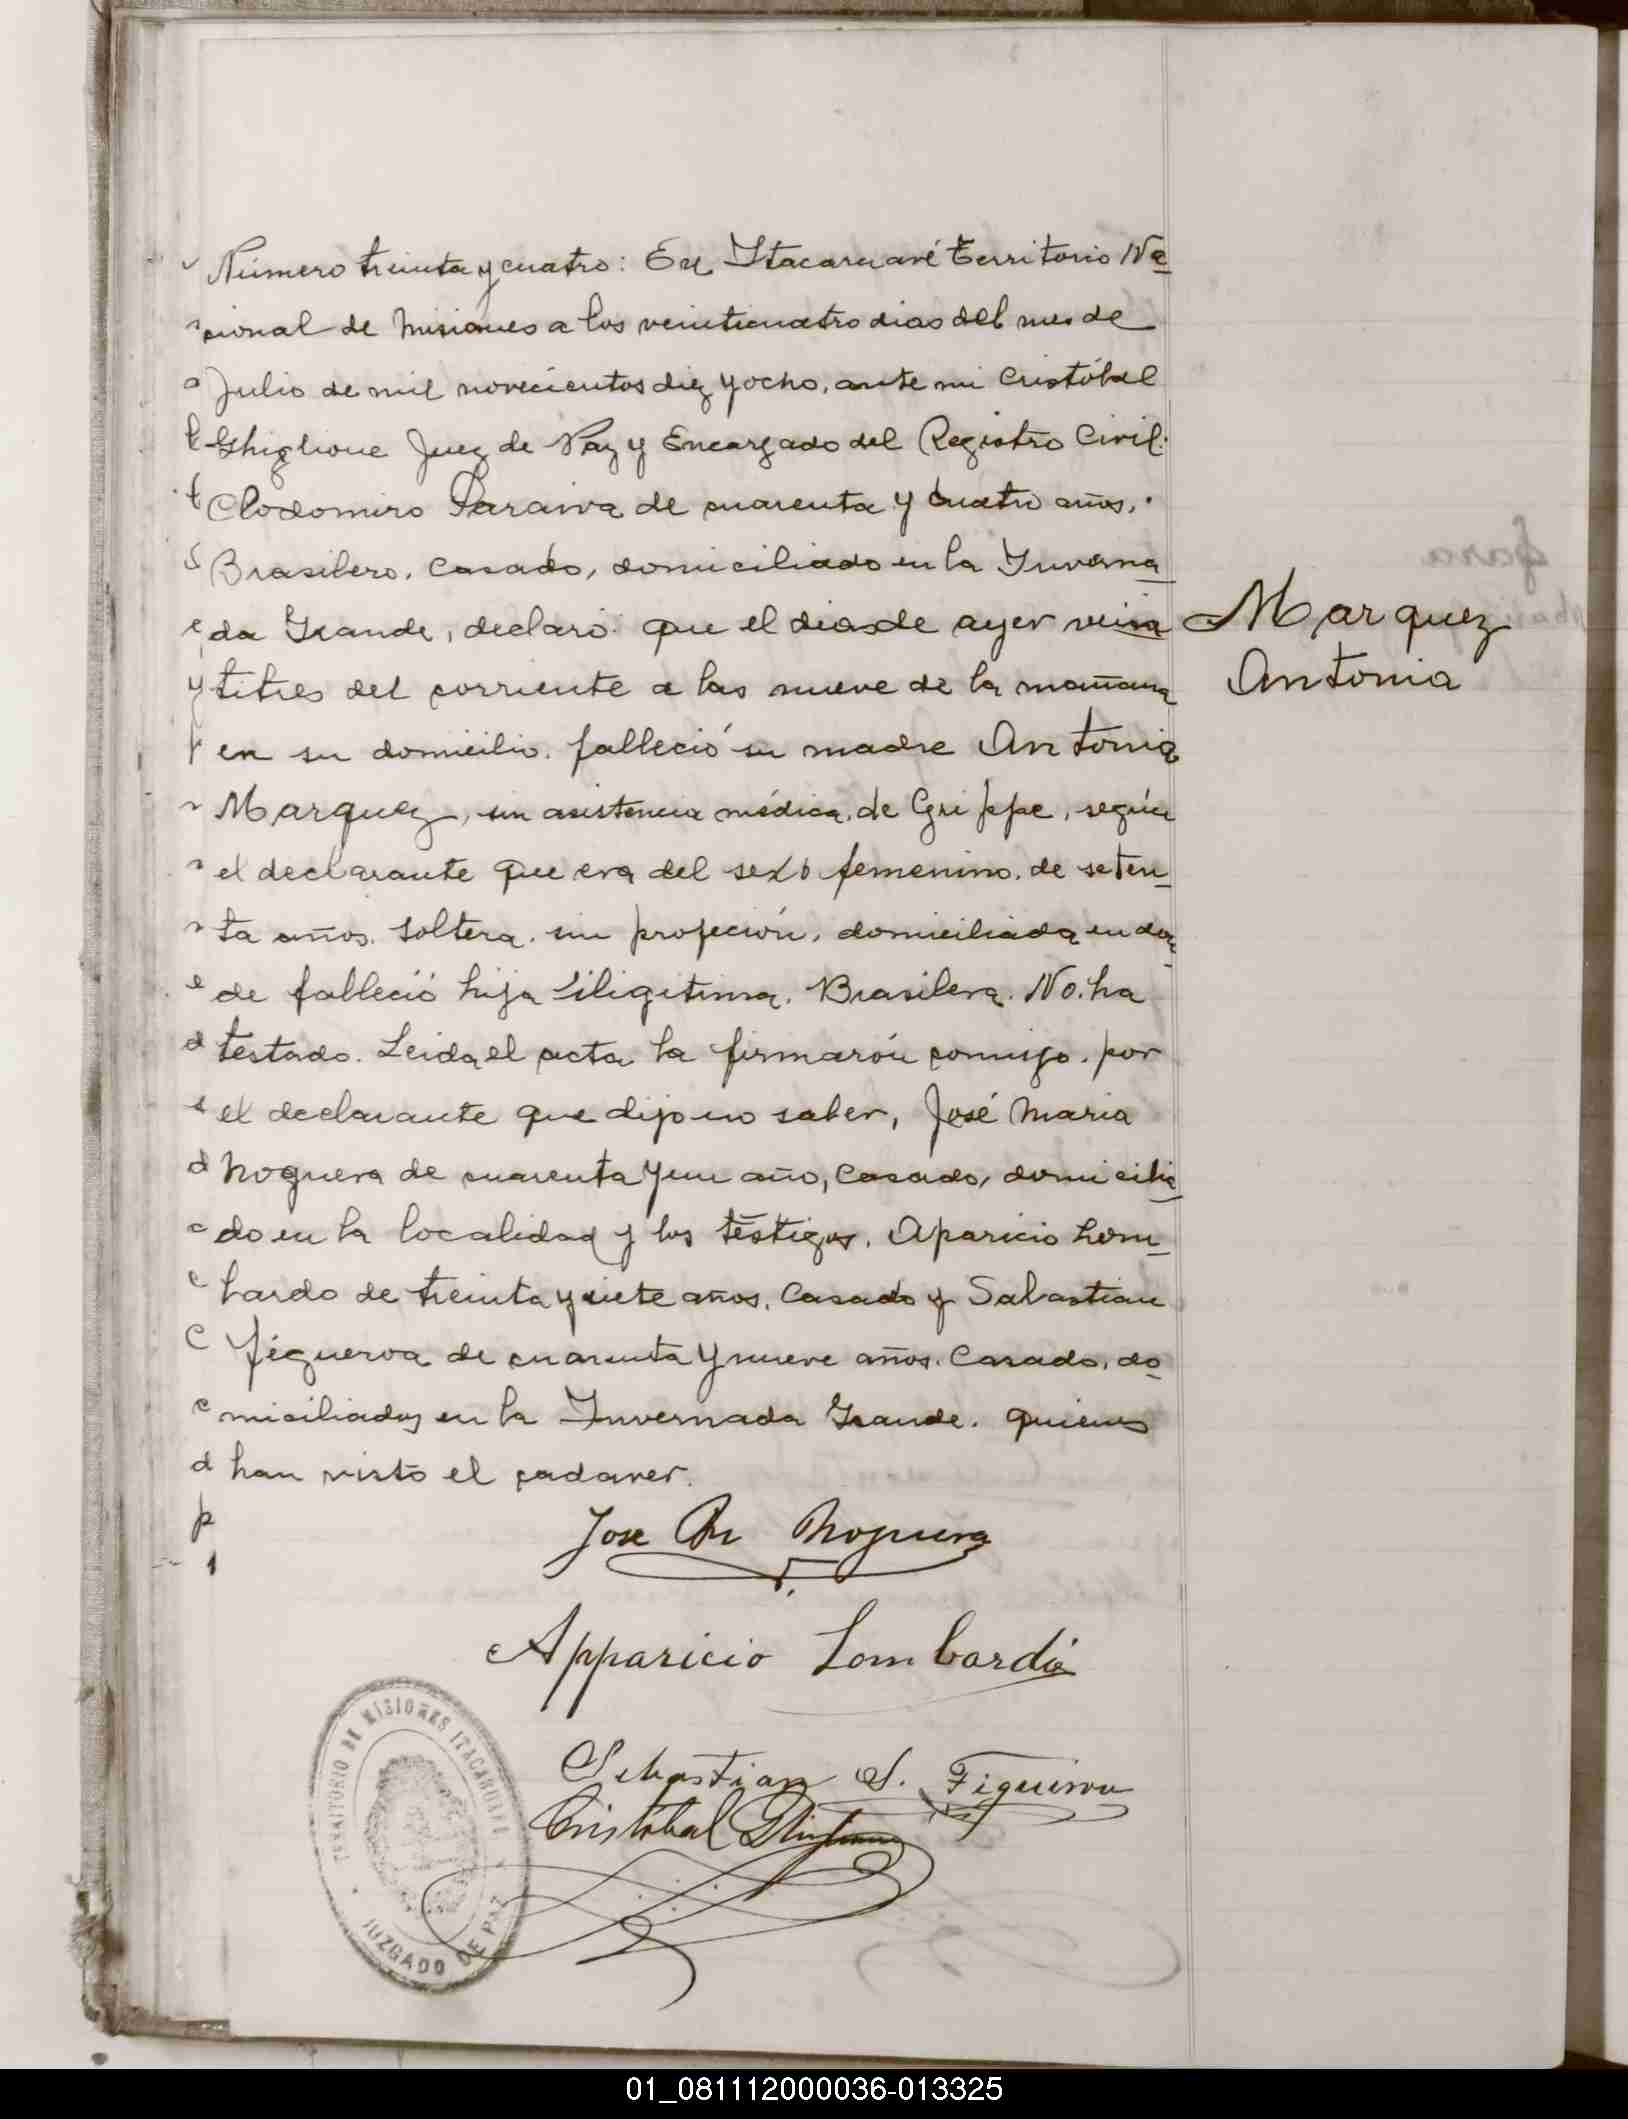 Número treinta y cuatro: En Itacaruaré Territorio Na
cional de Misiones a los veinticuatro dias del mes de
Julio de mil novecientos diez y ocho, ante mi Cristóbal
Ghiglione Juez de Paz y Encargado del Registro Civil.
Clodomiro Saraiva de cuarenta y cuatro años,
Brasilero. Casado, domiciliado en la Inverna
da Grande, declaró: que el dia de ayer vein
titres del corriente a las nueve de la mañana
en su domicilio. falleció su madre Antonia
Marquez, sin asistencia médica, de Grippe, según
el declarante que era del sexo femenino. de seten_
ta años. Soltera. sin profeción, domiciliada en don_
de falleció hija iligitima. Brasilera. No ha
testado. Leida el acta la firmarón conmigo. por
el declarante que dijo no saber, José Maria
Noguera de cuarenta y un año, Casado, domicilia
do en la localidad y los téstigos. Aparicio Lom_
bardo de treinta y siete años. Casado y Sabastian
Figueroa de cuarenta y nueve años. Casado, do
miciliados en la Invernada Grande. quienes
han visto el cadaver.
Marquez
Antonia
Jose Noguera
Apparicio Lombardo
Sebastian S. Figueroa
Cristóbal Ghiglione
TERRITORIO DE MISIONES ITACARUARE
JUZGADO DE PAZ
01_081112000036-013325